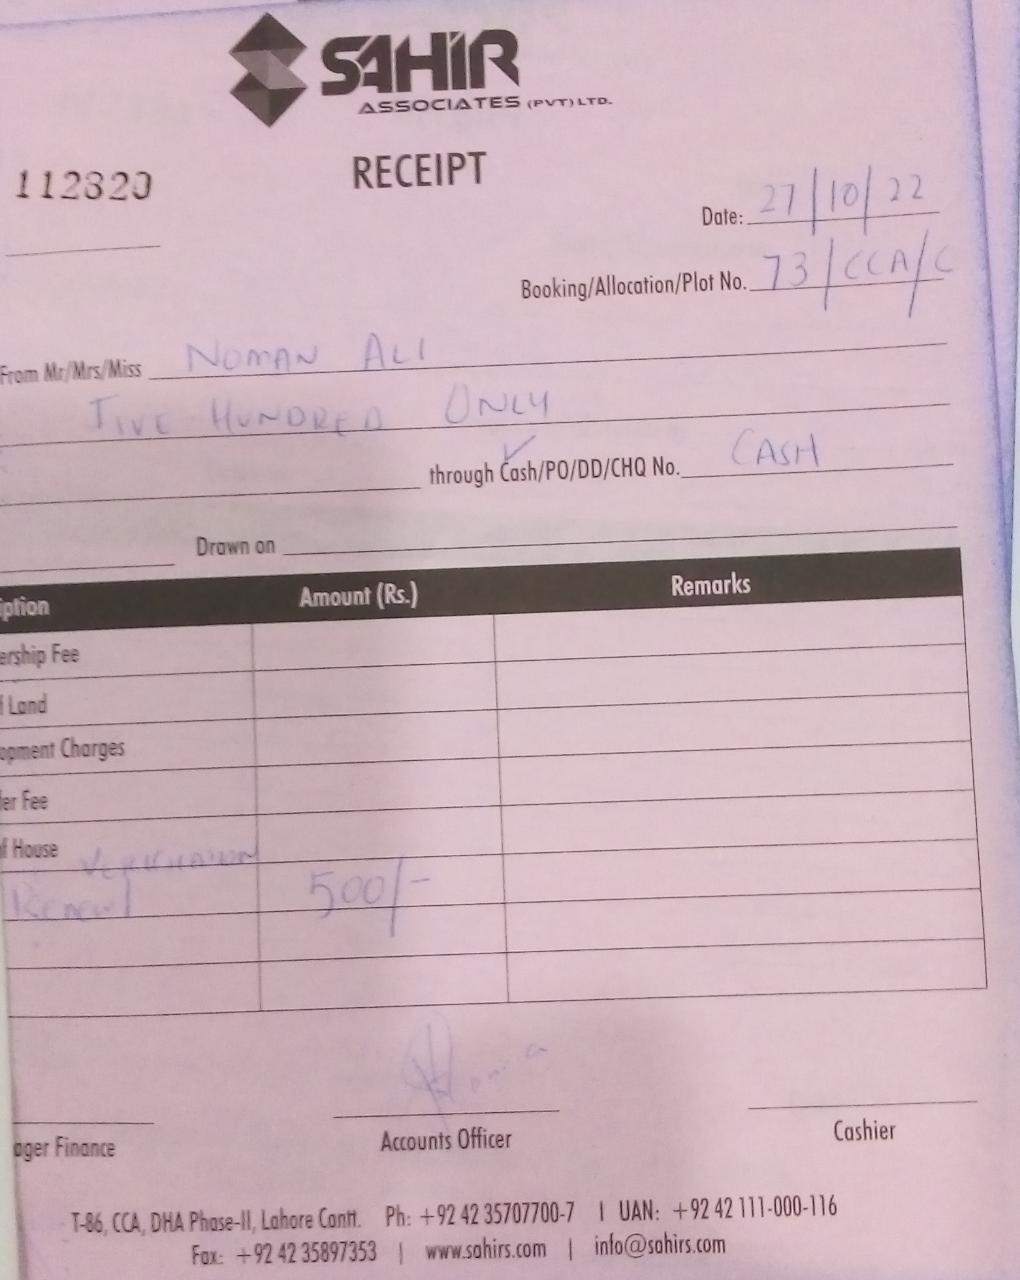 SAHIR
ASSOCIATES (PVT) LTD.
RECEIPT
112320
Date: 27/10/22
Booking/Allocation/Plot No. 73/CCA/C
From Mr/Mrs/Miss NOMAN ALI
FIVE HUNDRED ONLY
through Cash/PO/DD/CHQ No. CASH
Drawn on
iption Amount (Rs.) Remarks
ership Fee
f Land
opment Charges
er Fee
f House
500/-
ager Finance Accounts Officer Cashier
T-86, CCA, DHA Phase-II, Lahore Cantt. Ph: +92 42 35707700-7 | UAN: +92 42 111-000-116
Fax: +92 42 35897353 | www.sahirs.com | info@sahirs.com